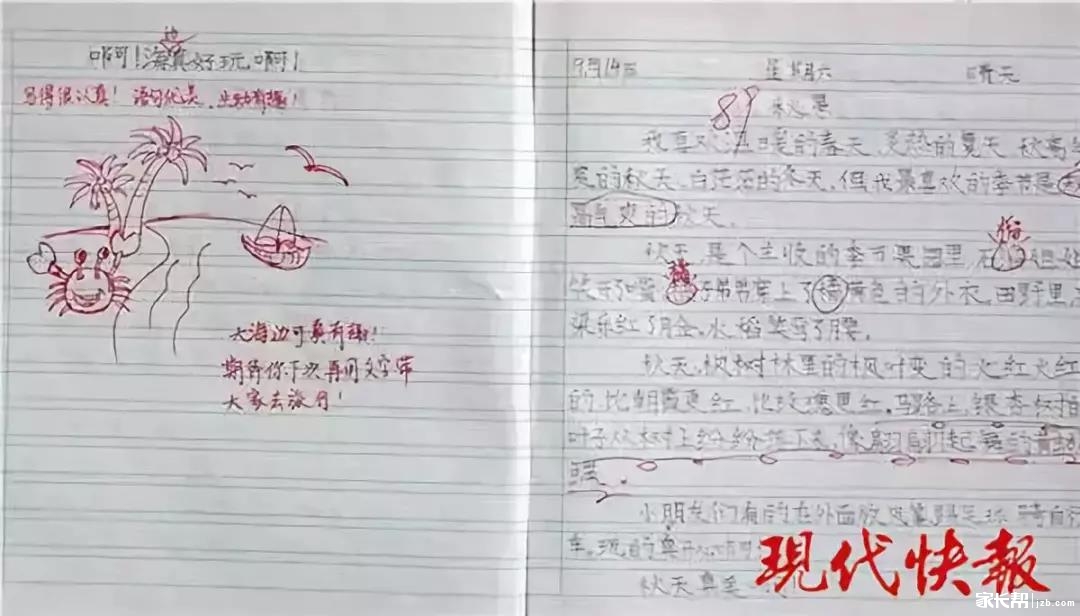 边
啊!海真好玩啊!
写得很认真!语句优美,生动有趣!
大海边可真有趣!
期待你下次再用文字带
大家去旅行!
9月14日 星期六 晴天
89
我喜欢温暖的春天,炎热的夏天,秋高气
爽的秋天,白茫茫的冬天,但我最喜欢的季节是
高气爽的秋天。
秋天,是个丰收的季节果园里,石
笑 了 穿上了橘黄色的外衣,田野里,
梁乐红了脸,水稻笑弯了腰。
秋天,枫树林里的枫叶变的火红火红
的,比朝霞更红,比玫瑰更红。马路上,银杏树
叶子从树上纷纷落下来,像翩翩起舞的黄
小朋友们有的在外面放风筝 骑自行
车,玩的真开心啊
秋天真美
现代快報
家长帮 jzb.com